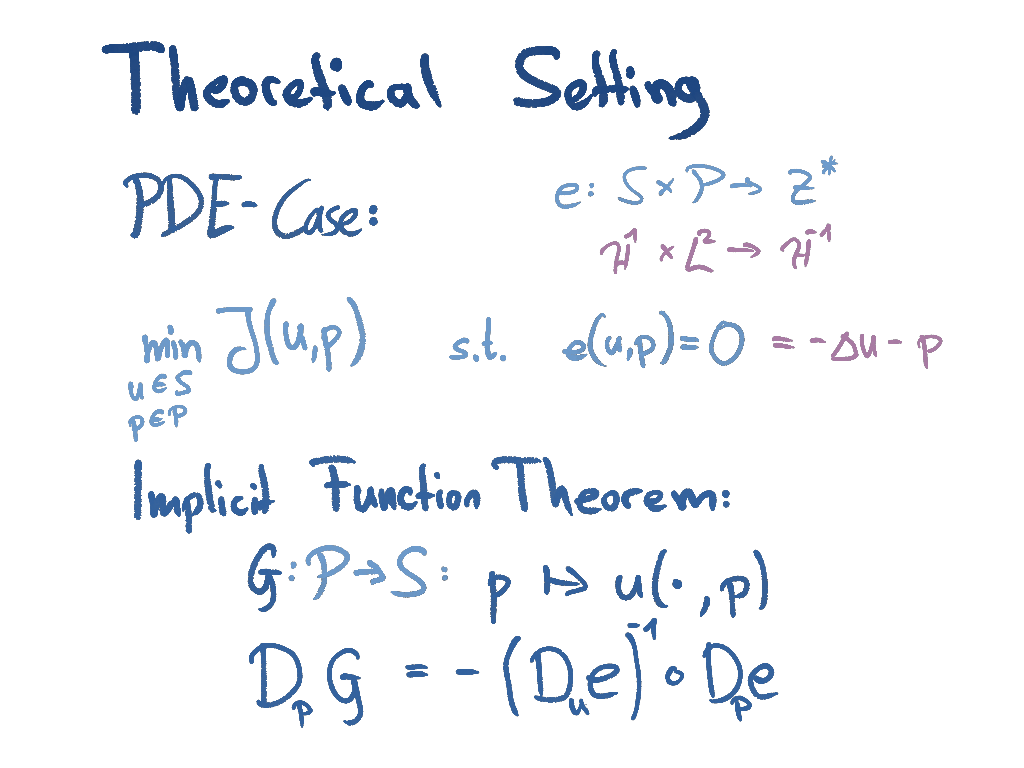 Theoretical Setting
PDE-Case:
e: S × P → Z*
H¹ × L² → H⁻¹
min J(u,p) s.t. e(u,p) = 0 = -Δu - p
u ∈ S
p ∈ P
Implicit Function Theorem:
G: P → S: p ↦ u(·, p)
DₚG = -(Dᵤe)⁻¹ ∘ Dₚe